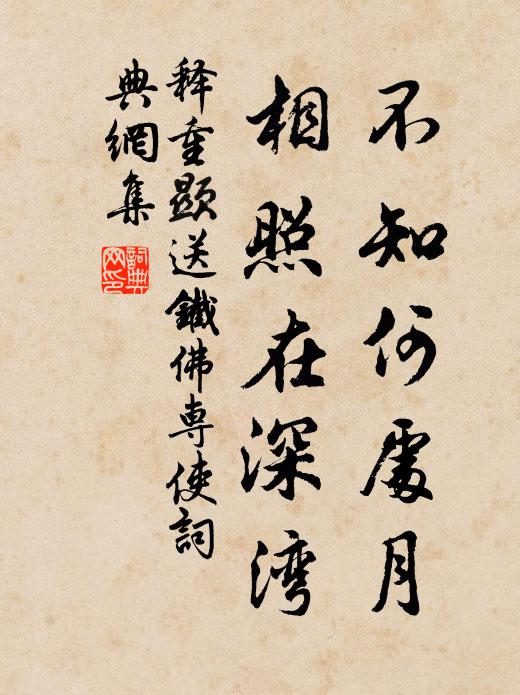 不知何處月
相照在深湾
释重顯送鐵佛専使詞
典網集
詞典
网印